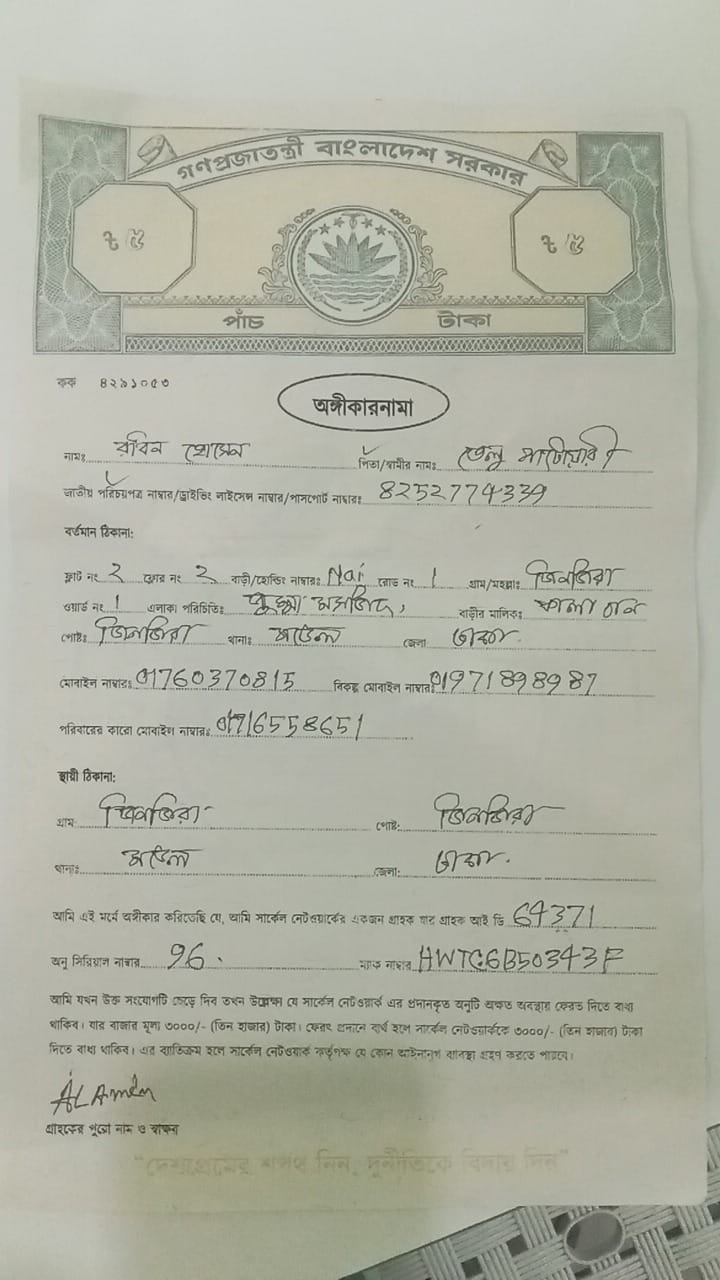 গণপ্রজাতন্ত্রী বাংলাদেশ সরকার
৳ ৫ ৳ ৫
পাঁচ টাকা
কক ৪২৯১০৫৩
অঙ্গীকারনামা
নামঃ রবিন হোসেন পিতা/স্বামীর নামঃ
জাতীয় পরিচয়পত্র নাম্বার/ড্রাইভিং লাইসেন্স নাম্বার/পাসপোর্ট নাম্বারঃ 8252774339
বর্তমান ঠিকানা:
ফ্লাট নং 2 ফ্লোর নং 2 বাড়ী/হোল্ডিং নাম্বারঃ Nai রোড নং 1 গ্রাম/মহল্লাঃ জিনজিরা
ওয়ার্ড নং 1 এলাকা পরিচিতিঃ মসজিদ, বাড়ীর মালিকঃ কালা চান
পোষ্টঃ জিনজিরা থানাঃ মডেল জেলা ঢাকা.
মোবাইল নাম্বারঃ 01760370815 বিকল্প মোবাইল নাম্বারঃ 01971898987
পরিবারের কারো মোবাইল নাম্বারঃ 01716558651
স্থায়ী ঠিকানা:
গ্রামঃ জিনজিরা পোষ্ট: জিনজিরা
থানাঃ মডেল জেলা: ঢাকা.
আমি এই মর্মে অঙ্গীকার করিতেছি যে, আমি সার্কেল নেটওয়ার্কের একজন গ্রাহক যার গ্রাহক আই ডি 64371
অনু সিরিয়াল নাম্বার 96. ম্যাক নাম্বার HWTC6B50343F
আমি যখন উক্ত সংযোগটি ছেড়ে দিব তখন উল্লেখ্য যে সার্কেল নেটওয়ার্ক এর প্রদানকৃত অনুটি অক্ষত অবস্থায় ফেরত দিতে বাধ্য
থাকিব। যার বাজার মূল্য ৩০০০/- (তিন হাজার) টাকা। ফেরৎ প্রদানে ব্যর্থ হলে সার্কেল নেটওয়ার্ককে ৩০০০/- (তিন হাজার) টাকা
দিতে বাধ্য থাকিব। এর ব্যতিক্রম হলে সার্কেল নেটওয়ার্ক কর্তৃপক্ষ যে কোন আইনানুগ ব্যবস্থা গ্রহণ করতে পারবে।
AL Amin
গ্রাহকের পুরো নাম ও স্বাক্ষর
"দেশপ্রেমের শপথ নিন, দুর্নীতিকে বিদায় দিন"